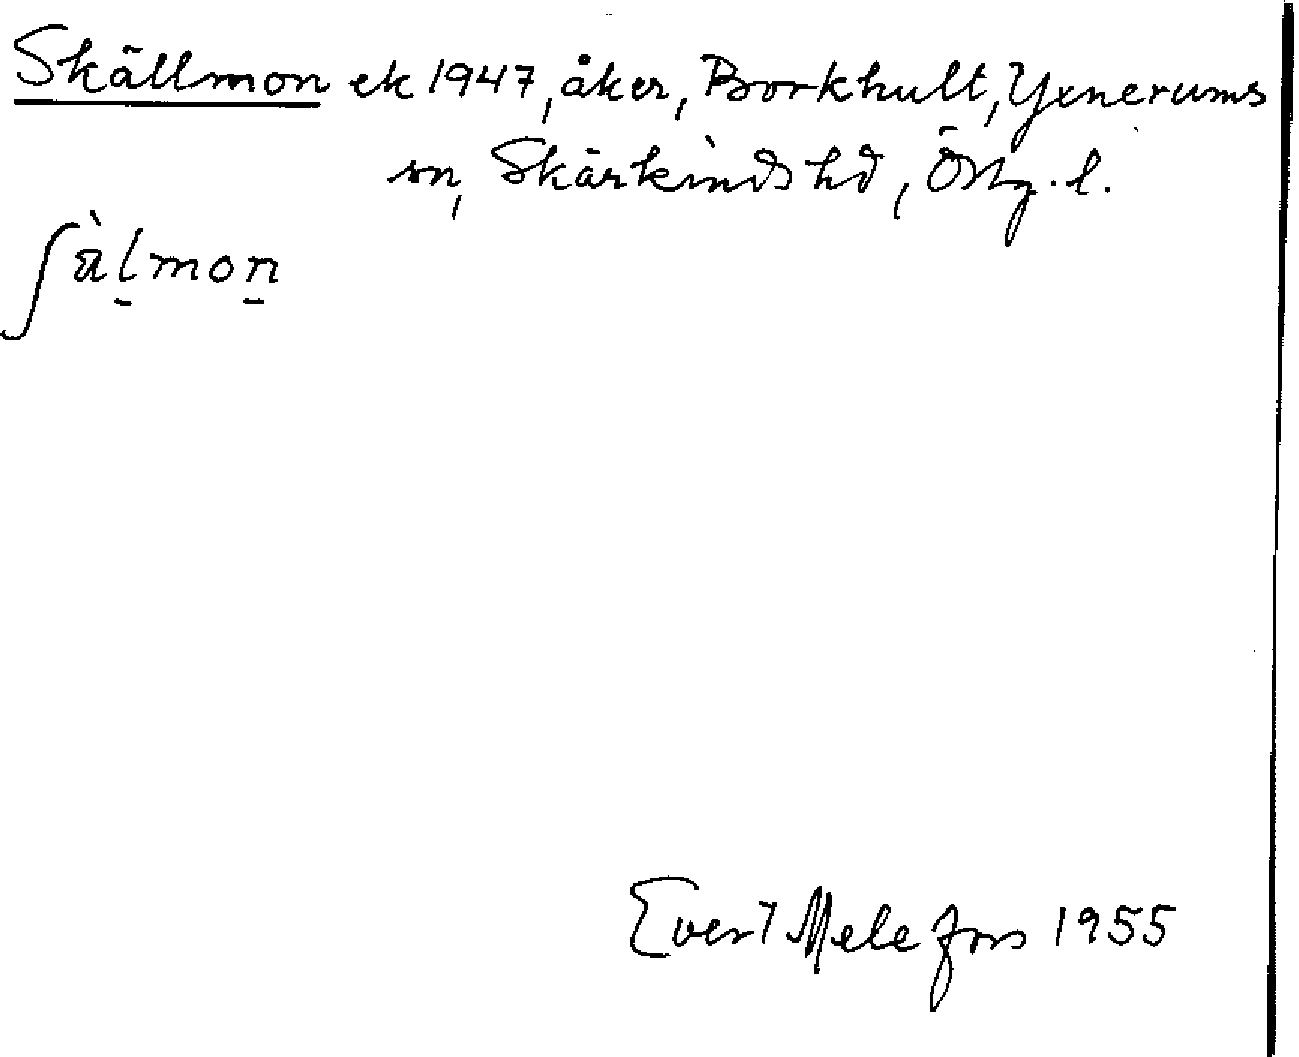 Skällmon ek 1947, åker, Borkhult, Yxnerums
sn, Skärkinds hd, Östg. l.
ʃà̈l̠mon̠
Evert Melefors 1955